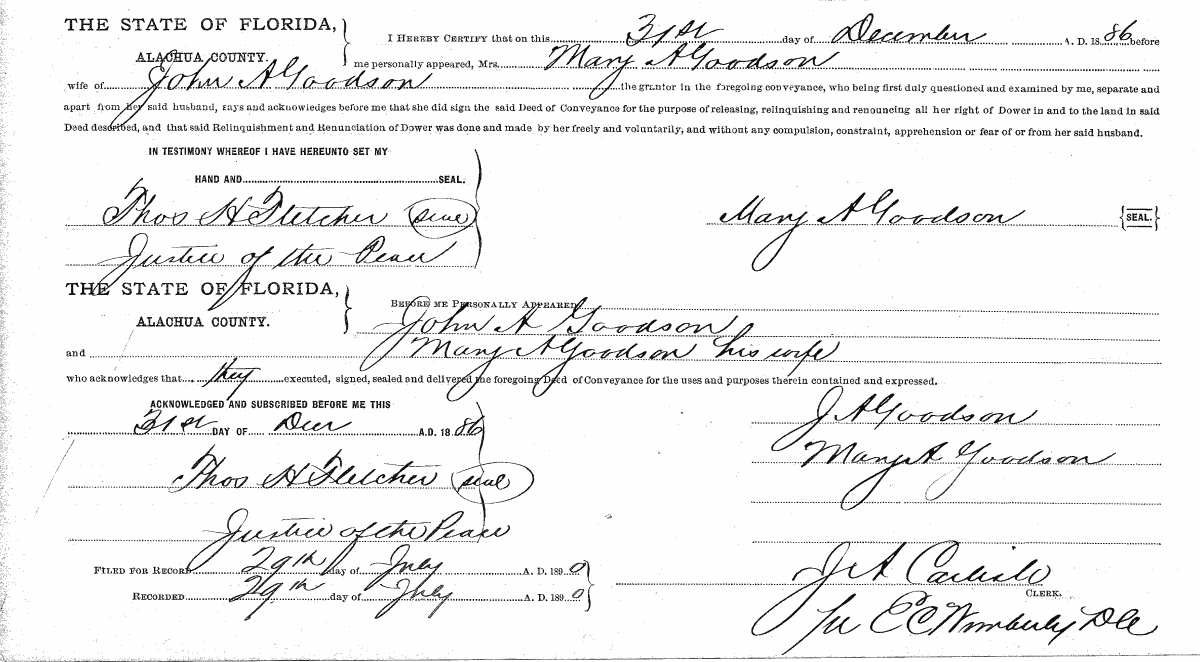 THE STATE OF FLORIDA,
ALACHUA COUNTY.
I HEREBY CERTIFY that on this 31st day of December A. D. 1886 before
me personally appeared, Mrs. Mary A Goodson
wife of John A Goodson the grantor in the foregoing conveyance, who being first duly questioned and examined by me, separate and
apart from her said husband, says and acknowledges before me that she did sign the said Deed of Conveyance for the purpose of releasing, relinquishing and renouncing all her right of Dower in and to the land in said
Deed described, and that said Relinquishment and Renunciation of Dower was done and made by her freely and voluntarily, and without any compulsion, constraint, apprehension or fear of or from her said husband.
IN TESTIMONY WHEREOF I HAVE HEREUNTO SET MY
HAND AND SEAL.
Thos H Fletcher (seal)
Mary A Goodson {SEAL.}
Justice of the Peace
THE STATE OF FLORIDA,
ALACHUA COUNTY.
BEFORE ME PERSONALLY APPEARED
John A Goodson
and Mary A Goodson his wife
who acknowledges that they executed, signed, sealed and delivered the foregoing Deed of Conveyance for the uses and purposes therein contained and expressed.
ACKNOWLEDGED AND SUBSCRIBED BEFORE ME THIS
31st DAY OF Decr A.D. 1886
J A Goodson
Mary A Goodson
Thos H Fletcher (seal)
Justice of the Peace
FILED FOR RECORD 29th day of July A. D. 1890
RECORDED 29th day of July A. D. 1890
J A Carlisle
CLERK.
E C Wimberly DC